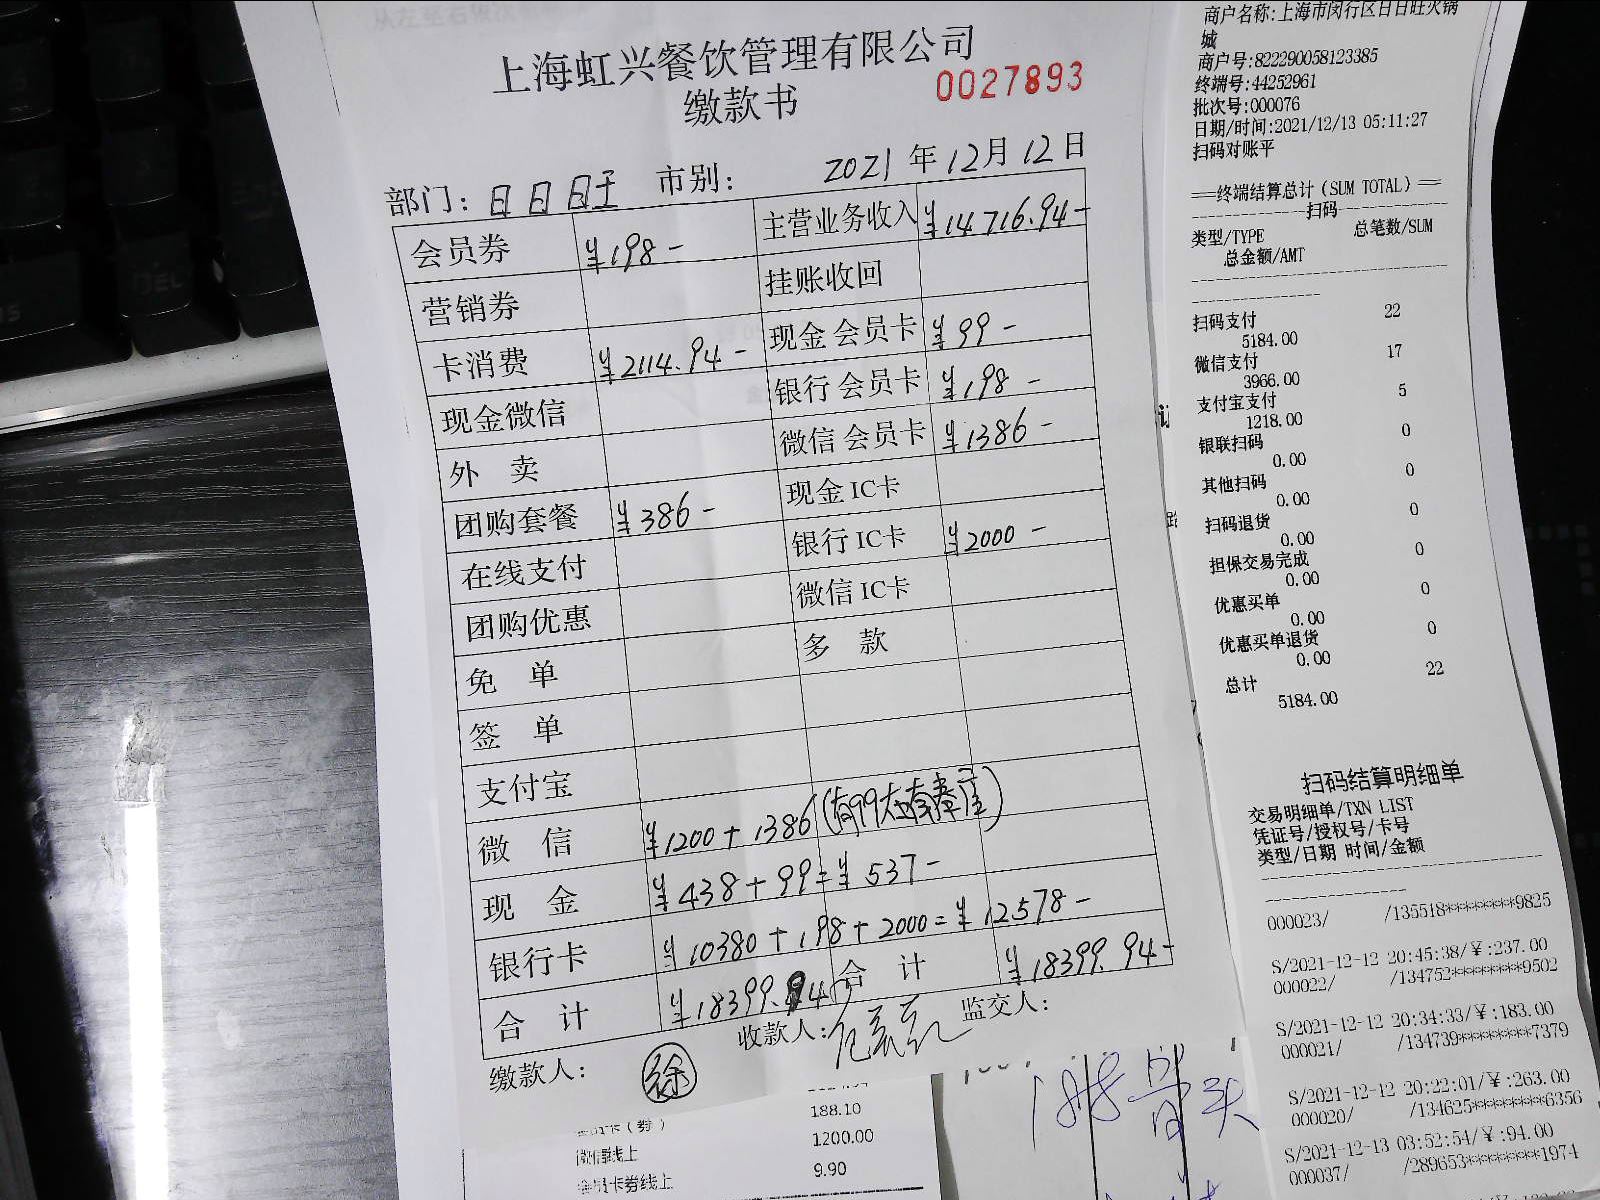 上海虹兴餐饮管理有限公司
缴款书
0027893
部门：日日旺 市别： 2021年12月12日
会员券 ¥198- 主营业务收入 ¥14716.94-
营销券 挂账收回
卡消费 ¥2114.94- 现金会员卡 ¥99-
现金微信 银行会员卡 ¥198-
外 卖 微信会员卡 ¥1386-
团购套餐 ¥386- 现金IC卡
在线支付 银行IC卡 ¥2000-
团购优惠 微信IC卡
免 单 多 款
签 单
支付宝
微 信 ¥1200+1386
现 金 ¥438+99=¥537-
银行卡 ¥10380+198+2000=¥12578-
合 计 ¥18399.94 合 计 ¥18399.94-
缴款人： 徐 收款人： 监交人：
188.10
微信线上 1200.00
会员卡券线上 9.90
商户名称:上海市闵行区日日旺火锅
城
商户号:822290058123385
终端号:44252961
批次号:000076
日期/时间:2021/12/13 05:11:27
扫码对账平
==终端结算总计(SUM TOTAL)==
扫码
类型/TYPE 总笔数/SUM
总金额/AMT
扫码支付 22
5184.00
微信支付 17
3966.00
支付宝支付 5
1218.00
银联扫码 0
0.00
其他扫码 0
0.00
扫码退货 0
0.00
担保交易完成 0
0.00
优惠买单 0
0.00
优惠买单退货 0
0.00
总计 22
5184.00
扫码结算明细单
交易明细单/TXN LIST
凭证号/授权号/卡号
类型/日期 时间/金额
000023/ /135518********9825
S/2021-12-12 20:45:38/¥:237.00
000022/ /134752********9502
S/2021-12-12 20:34:33/¥:183.00
000021/ /134739********7379
S/2021-12-12 20:22:01/¥:263.00
000020/ /134625********6356
S/2021-12-13 03:52:54/¥:94.00
000037/ /289653********1974